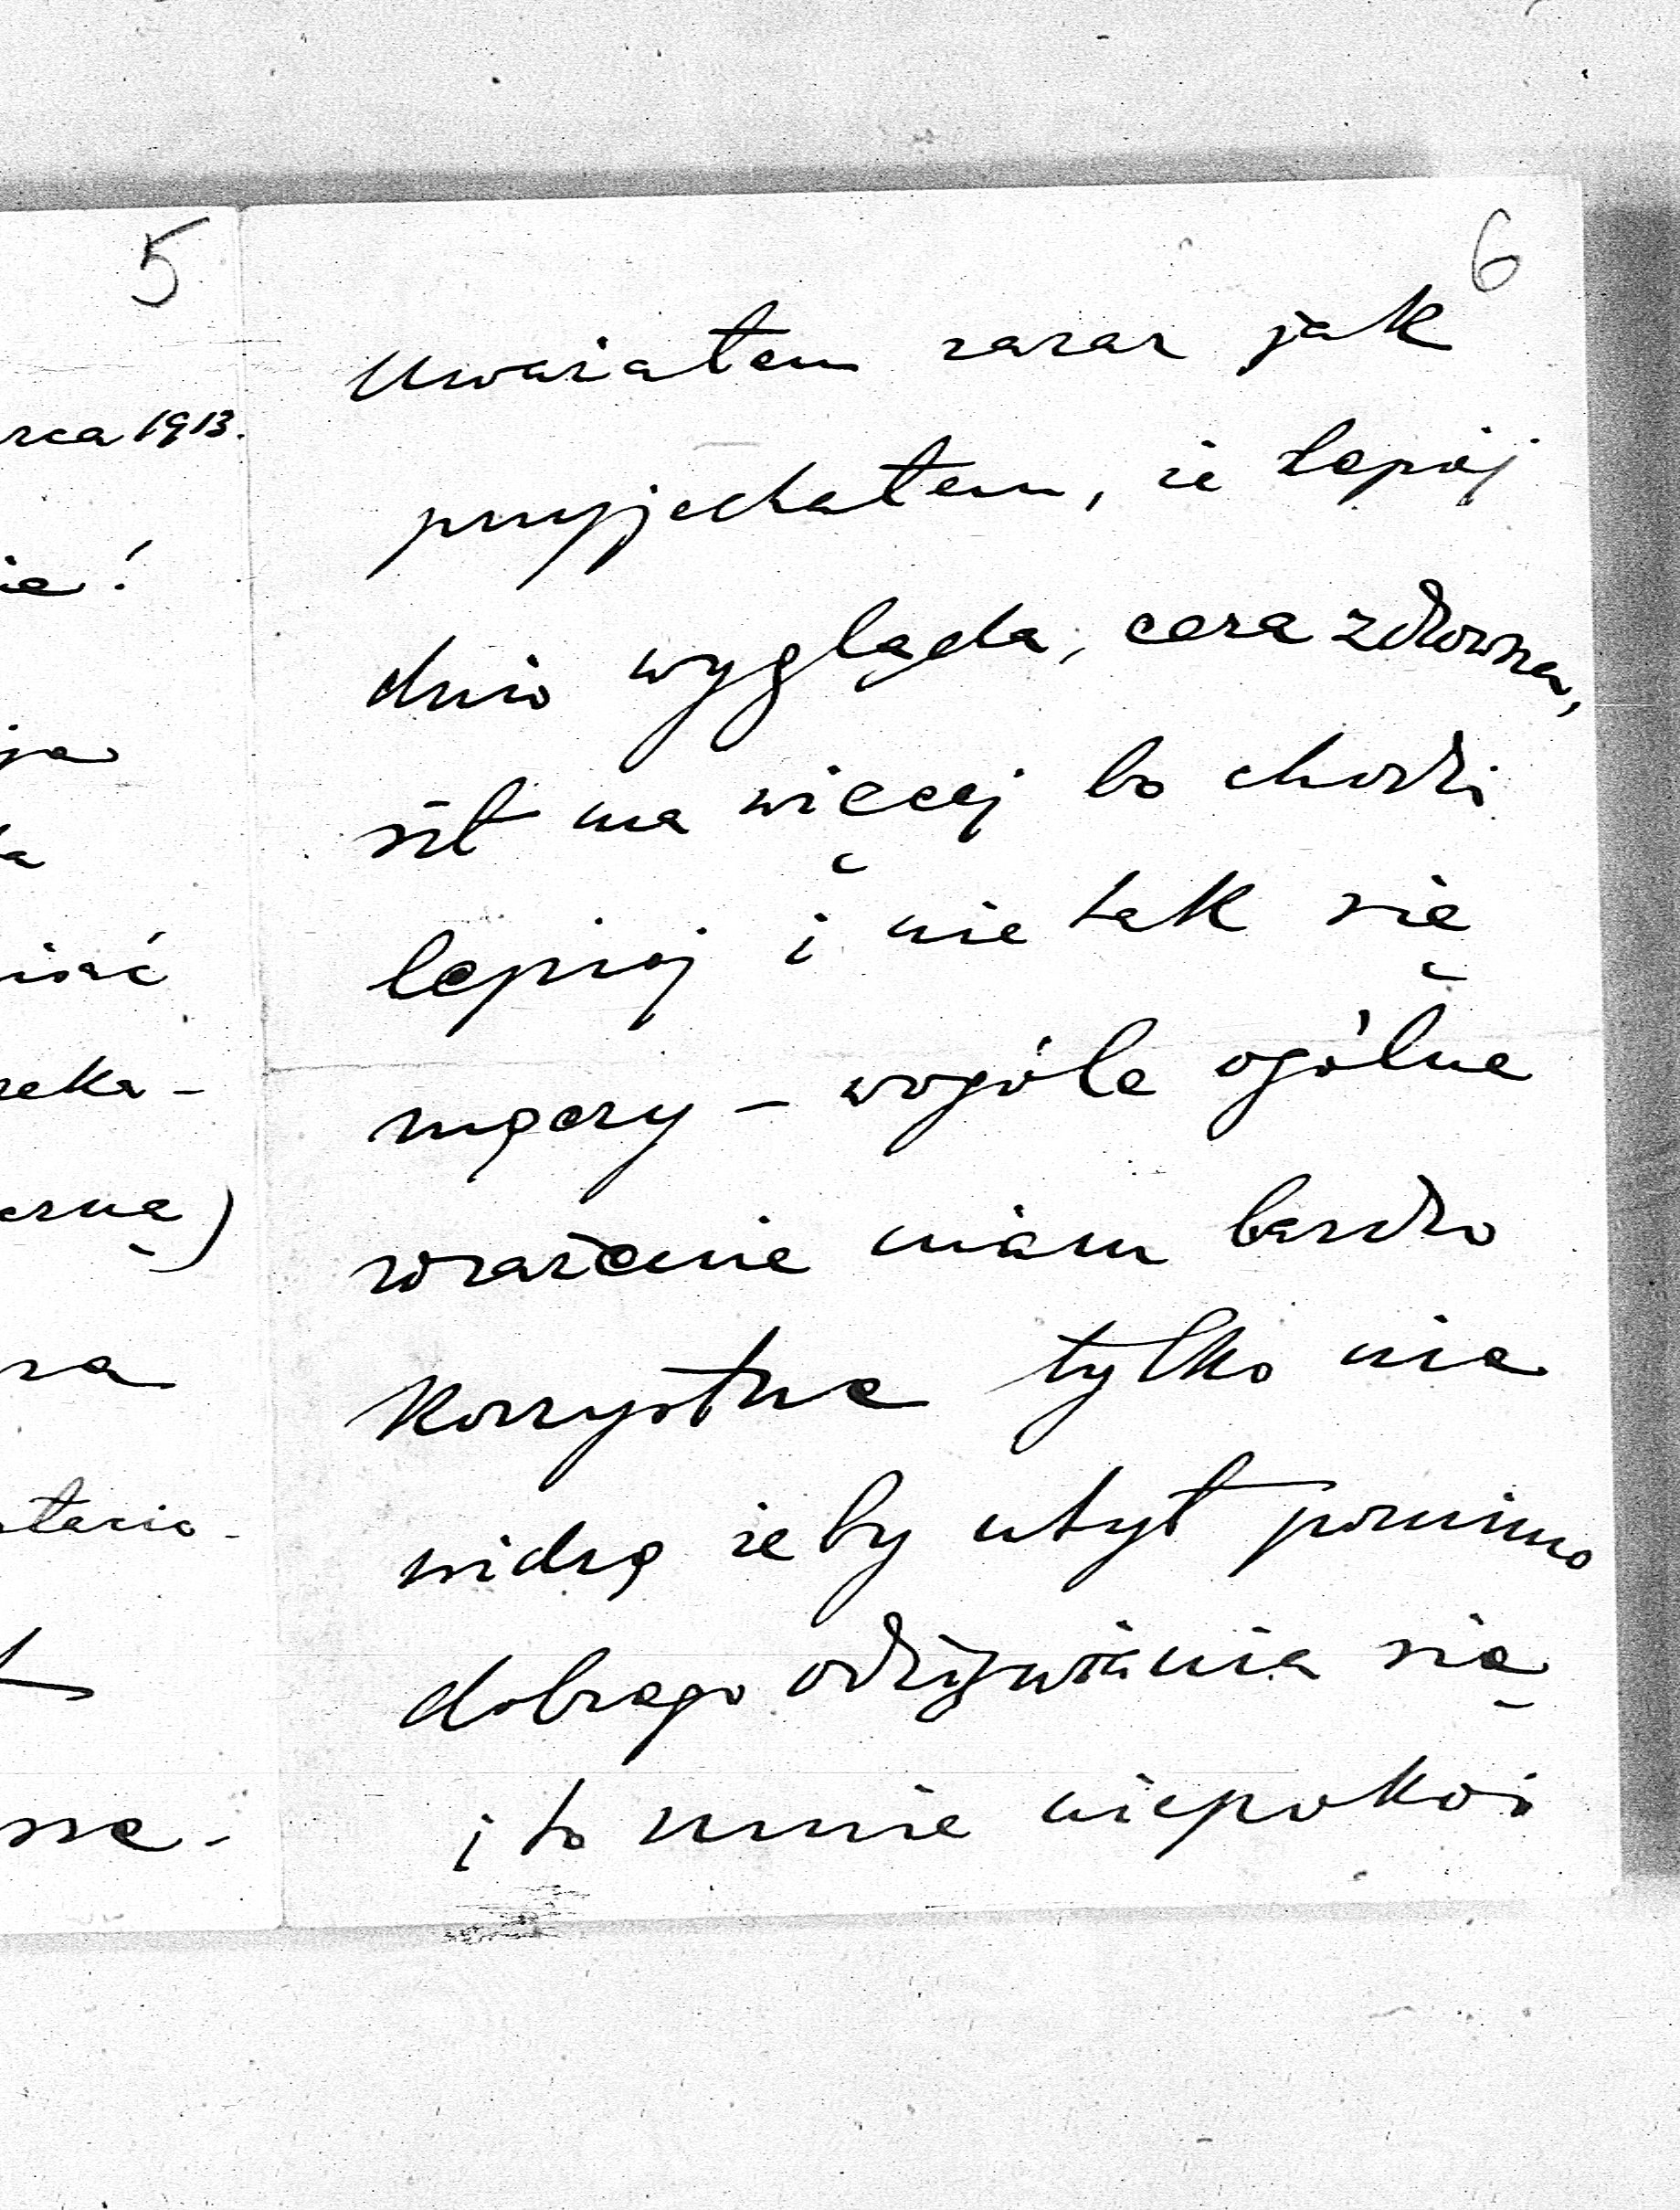 5
rca 1913.
ie!
ja
a
reka-
erną)
ra
6
Uważałem zaraz jak
przyjechałem, że lepiej
dużo wygląda, cera zdrowsza,
sił ma więcej bo chodzi
lepiej i nie tak się
męczy – wogóle ogólne
wrażenie mam bardzo
korzystne tylko nie
widzę żeby utył pomimo
dobrego odżywiania się
i to mnie niepokoi